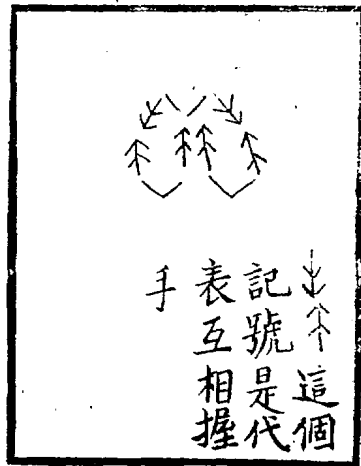 這個
記號是代
表互相握
手